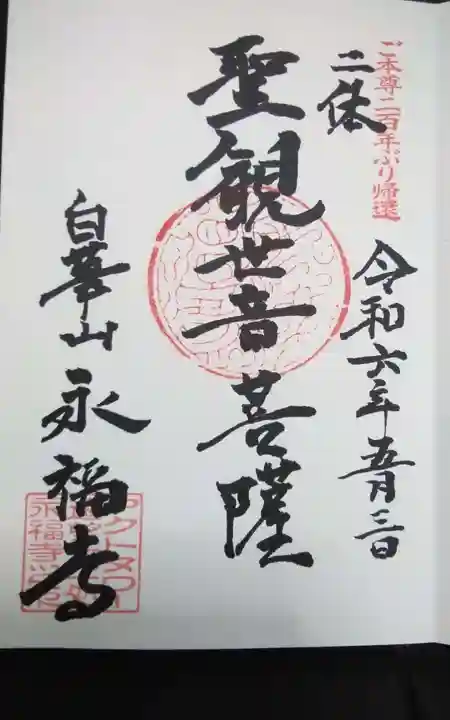 ご本尊二百年ぶり帰還
二体
令和六年五月三日
聖観世音菩薩
白華山永福寺